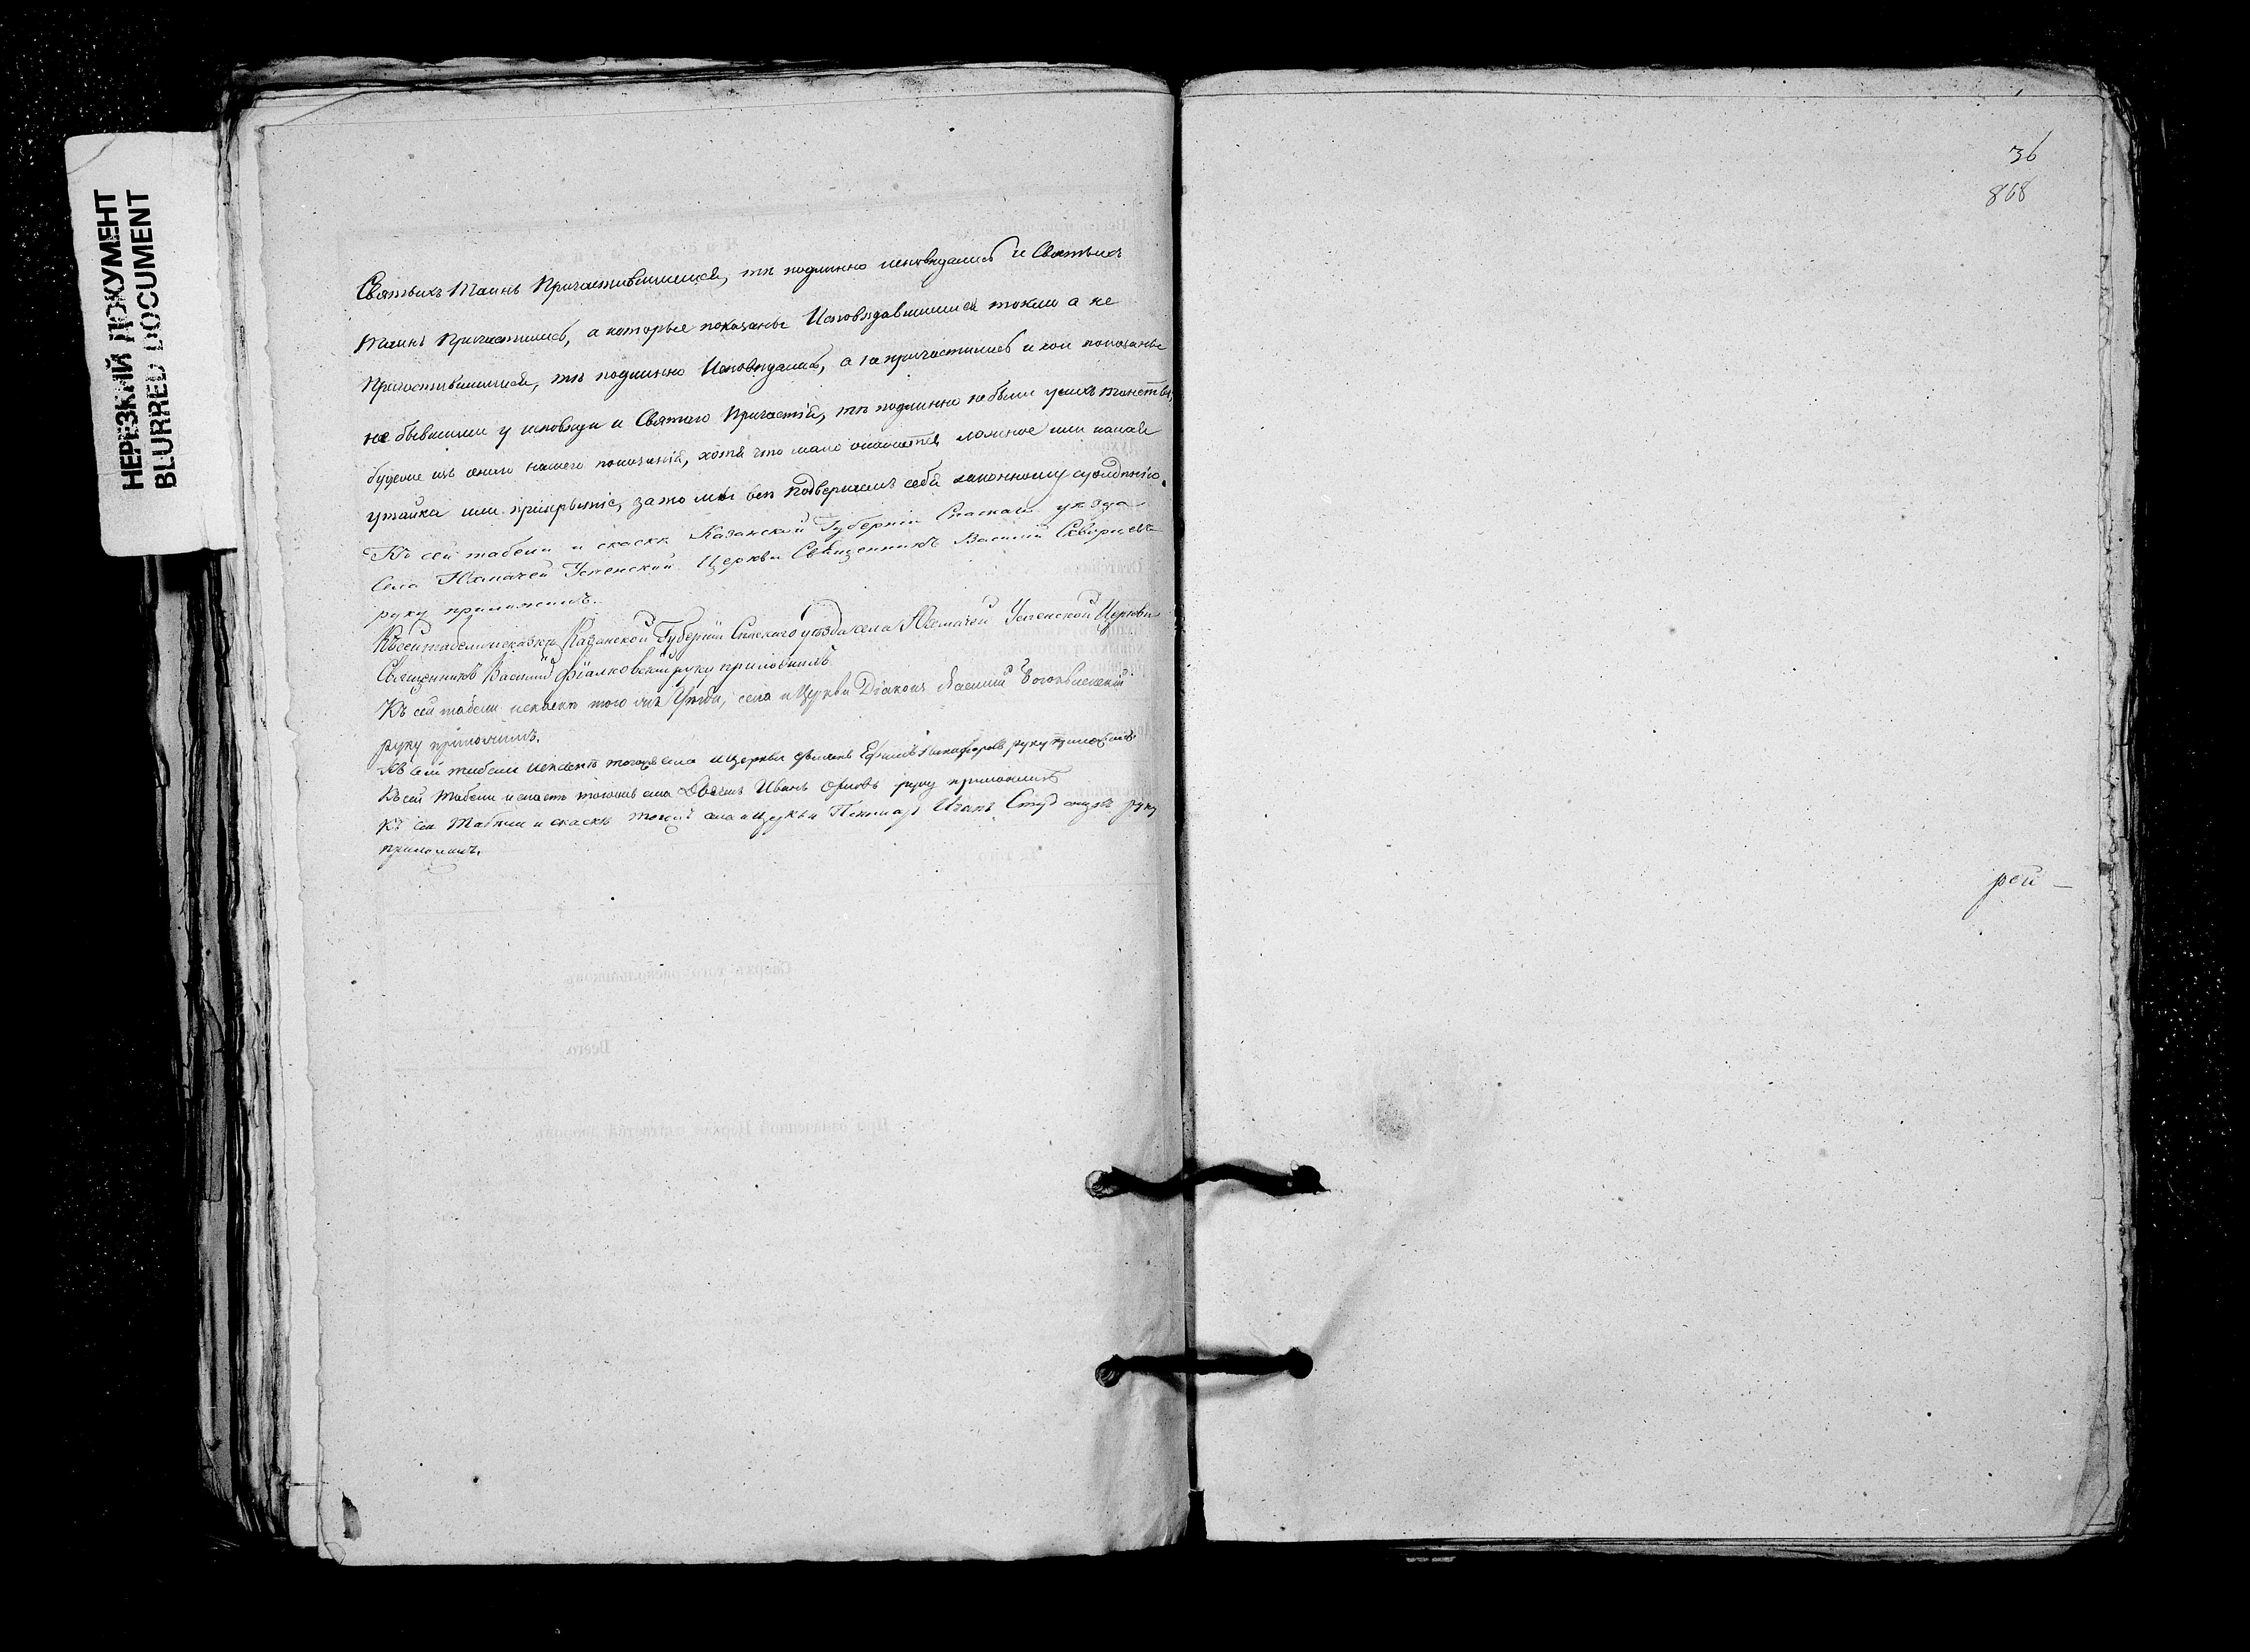 НЕРЕЗКИЙ ДОКУМЕНТ
BLURRED DOCUMENT
Святыхъ Таинъ Причастившимися, тѣ подлинно исповѣдались и Святыхъ
Таинъ Причастились, а которые показаны Исповѣдавшимися токмо а не
Причастившимися, тѣ подлинно Исповѣдались, а не причастились и кои показаны
не бывшими у исповѣди и Святаго Причастія, тѣ подлинно не были у сихъ таинствъ,
будеже изъ онаго нашего показанія, хотя что мало окажется ложное или какая
утайка или прикрытіе, за то мы всѣ подвергаемъ себя законному сужденію.
Къ сей табели и скаскѣ Казанской Губерніи Спаскаго уѣзда
Села Юхмачей Успенской Церкви Священникъ Василий
руку приложилъ.
Къ сей табели и скаскѣ Казанской Губерніи Спасскаго уѣзда села Юхмачей Успенской Церкви
Священникъ Василий Фіалковский руку приложилъ
Къ сей табели и скаскѣ того же Уѣзда, села и Церкви Діаконъ Василий Богоявленский
руку приложилъ.
Къ сей табели и скаскѣ тогоже села и церкви Ефимъ Никифоровъ руку приложилъ
Къ сей табели и скаскѣ тогожъ села Дьячекъ Иванъ Орловъ руку приложилъ
Къ сей Табели и скаскѣ тогожъ села и Церкви Пономарь Иванъ руку
приложилъ.
36
868
рой